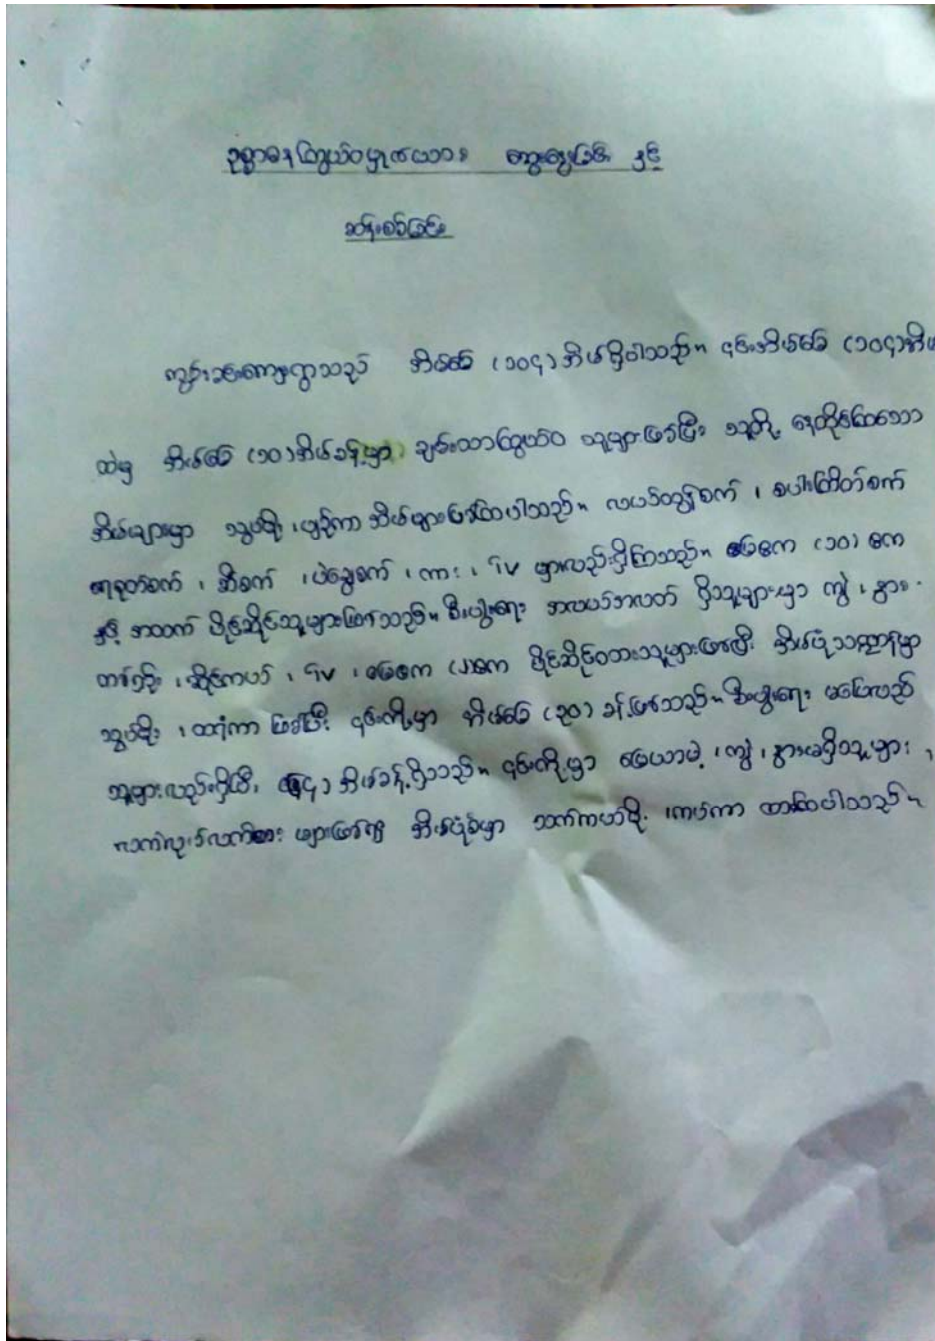 ဥစ္စာဓနကြွယ်ဝမှုဇယား ဆွေးနွေးခြင်း နှင့်
ဆန်းစစ်ခြင်း
ကျွန်းညောင်ရွာသည် အိမ်ခြေ (၁၀၄) အိမ်ရှိပါသည်။ ၎င်းအိမ်ခြေ (၁၀၄) အိမ်
ထဲမှ အိမ်ခြေ (၁၀) အိမ်ခန့်မှာ ချမ်းသာကြွယ်ဝ သူများဖြစ်ပြီး သူတို့ နေထိုင်ကြသော
အိမ်များမှာ သွပ်မိုး ၊ ပျဉ်ကာ အိမ်များဖြစ်ကြပါသည်။ လယ်ထွန်စက် ၊ စပါးကြိတ်စက်
ရေစုတ်စက် ၊ ဆီစက် ၊ ပဲခြွေစက် ၊ ကား ၊ TV များလည်းရှိကြသည်။ မြေဧက (၁၀) ဧက
နှင့် အထက် ပိုင်ဆိုင်သူများဖြစ်သည်။ စီးပွါးရေး အလယ်အလတ် ရှိသူများမှာ ကျွဲ ၊ နွား
တစ်ရှဉ်း ၊ ဆိုင်ကယ် ၊ TV ၊ မြေဧက ပိုင်ဆိုင်သူများဖြစ်ပြီး အိမ်ပုံသဏ္ဍာန်မှာ
သွပ်မိုး ၊ ထရံကာ ဖြစ်ပြီး ၎င်းတို့မှာ အိမ်ခြေ (၃၀) ခန့်ဖြစ်သည်။ စီးပွါးရေး မပြေလည်
သူများလည်းရှိပြီး အိမ်ခန့်ရှိသည်။ ၎င်းတို့မှာ မြေယာမဲ့ ၊ ကျွဲ ၊ နွားမရှိသူများ ၊
လက်လုပ်လက်စား များဖြစ်ကြ အိမ်ပုံစံမှာ သက်ကယ်မိုး ၊ ကပ်ကာ ထားကြပါသည်။